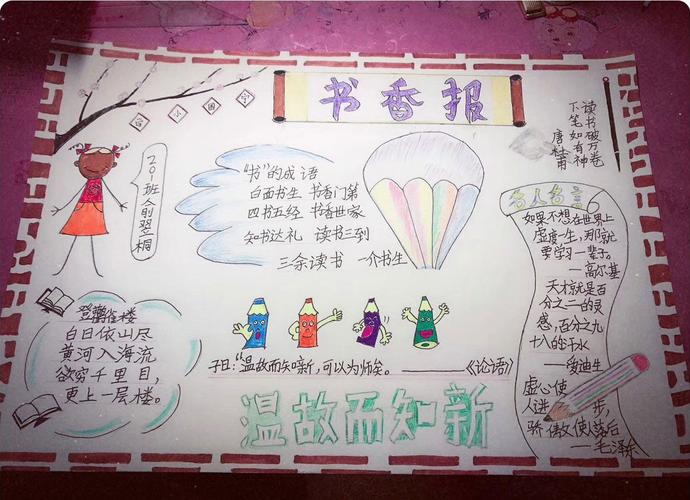 书香报
读书破万卷
下笔如有神
唐杜甫
201班俞翌桐
"书"的成语
白面书生 书香门第
四书五经 书香世家
知书达礼 读书三到
三余读书 一介书生
名人名言
如果不想在世界上
虚度一生，那就
要学习一辈子。
—高尔基
天才就是百
分之二的灵
感，百分之九
十八的汗水
—爱迪生
虚心使
人进步，
骄傲使人落后
—毛泽东
登鹳雀楼
白日依山尽
黄河入海流
欲穷千里目，
更上一层楼。
子曰："温故而知新，可以为师矣。 ———《论语》
温故而知新